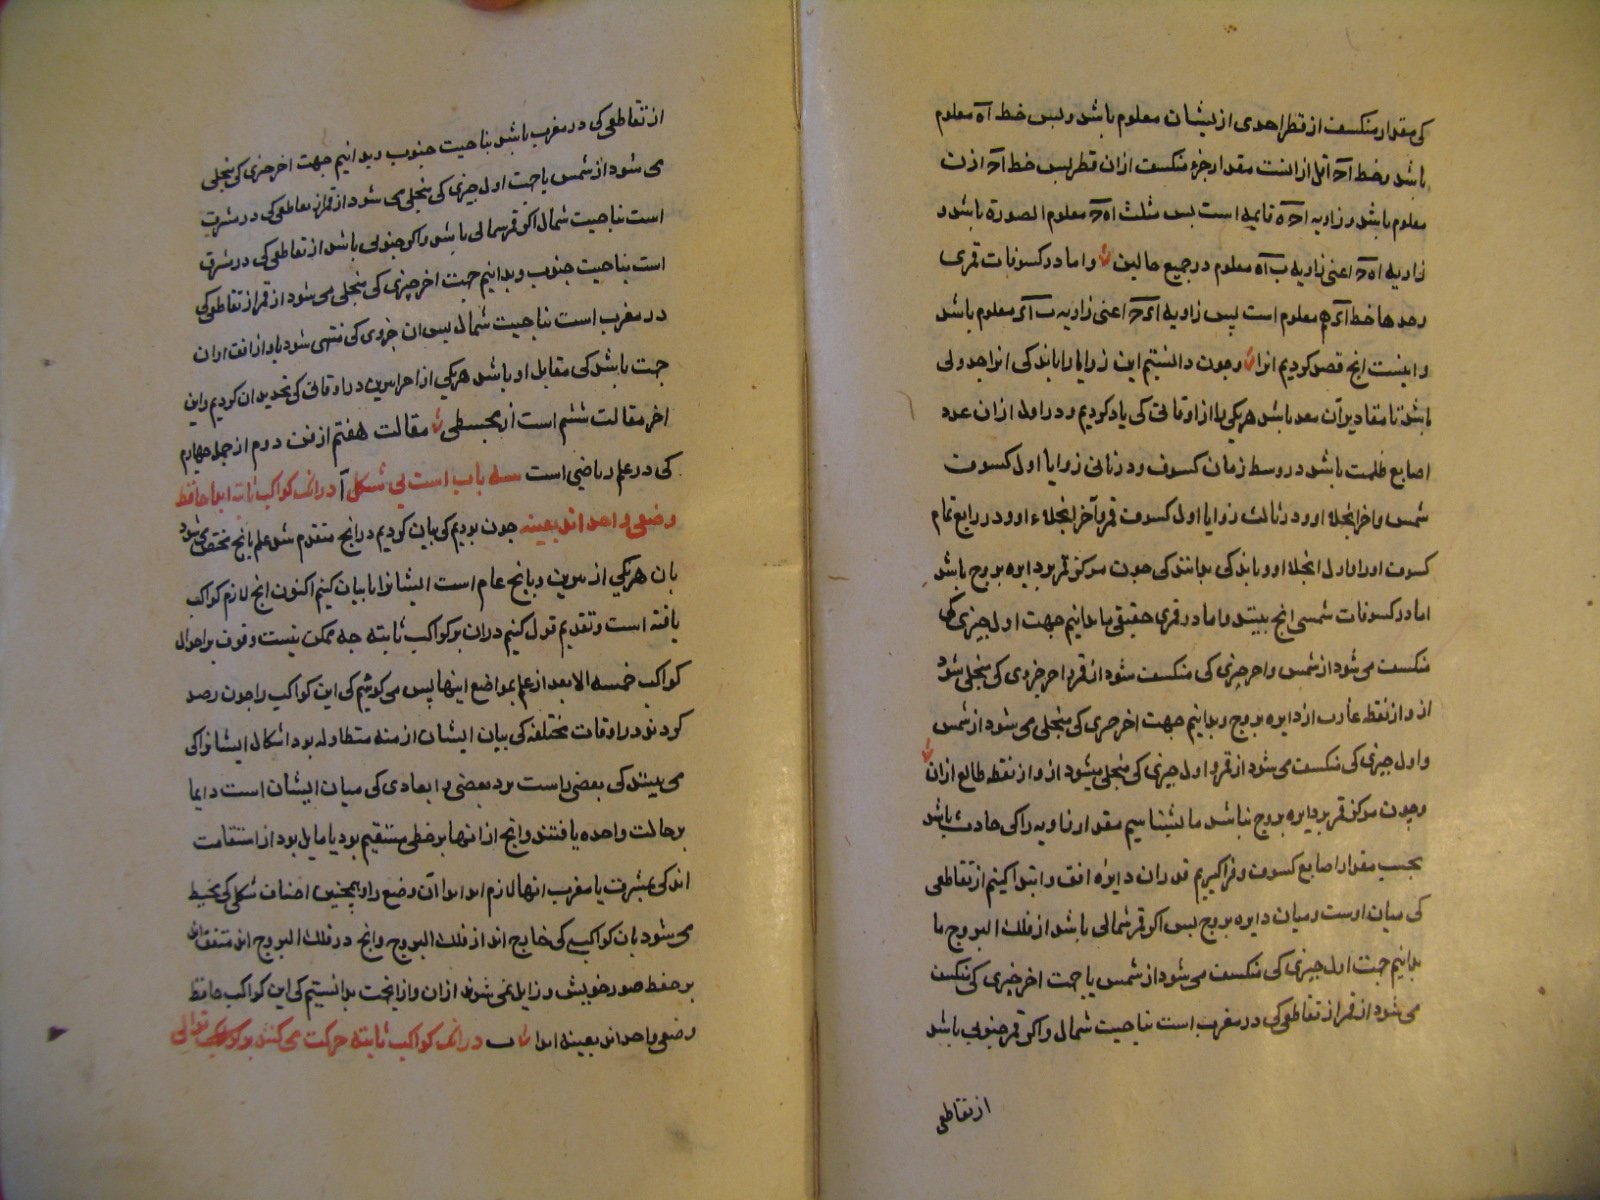 کی مقدار منکسف از قطر احدی از ایشان معلوم باشد و لیس خط آه معلوم
باشد و خط آح اقل از انست مقدار جزء منکسف از ان قطر پس خط آح اذن
معلوم باشد و زاویه احه قایمه است پس مثلث اهح معلوم الصورة باشد و
زاویه اهح اعنی زاویه ب آه معلوم در جمیع حالین و اما در کسوفات قمری
وحدها خط معلوم است پس زاویه اعنی زاویه معلوم باشد
و اینست انچ قصد کردیم انرا و چون دانستیم این زوایا را باید کی انرا جدولی
باشد تا مقادیر آن معد باشد هریکی را از اوقاتی کی یاد کردیم و در اول ازان عدد
اصابع ظلمت باشد در وسط زمان کسوف و در ثانی زوایا اول کسوف
شمس و اخر انجلاء او و در ثالث زوایا اول کسوف قمر و آخر انجلاء او و در رابع تمام
کسوف او را و اول انجلا او و باید کی بدانند کی چون مرکز قمر بر دایره بروج باشد
اما در کسوفات شمسی انچ بینند و اما در قمری حقیقی ما بدانیم جهت اول چیزی کی
منکسف می شود از شمس و اخر چیزی کی منکسف شود از قمر و اخر جزوی کی منجلی شود
از و از نقطه غارب از دایره بروج و بدانیم جهت اخر چیزی کی منجلی می شود از شمس
و اول چیزی کی منکسف می شود از قمر و اول چیزی کی منجلی میشود از و از نقطه طالع ازان
و چون مرکز قمر بر دایره بروج نباشد ما بشناسیم مقدار زاویه را کی حادث باشد
بحسب مقدار اصابع کسوف و فراگیریم قدر ان دایره افق و ابتدا کنیم از تقاطعی
کی میان اوست و میان دایره بروج پس اکر قمر شمالی باشد از فلک البروج ما
بدانیم جهت اول چیزی کی منکسف می شود از شمس یا جهت اخر چیزی کی منکسف
می شود از قمر از تقاطعی کی در مغرب است بناحیت شمال و اکر قمر جنوبی باشد
از تقاطعی
از تقاطعی کی در مغرب باشد بناحیت جنوب و بدانیم جهت اخر چیزی کی منجلی
می شود از شمس یا جهت اول چیزی کی منجلی می شود از قمر از تقاطعی کی در مشرق
است بناحیت شمال اکر قمر شمالی باشد و اکر جنوبی باشد از تقاطعی کی در مشرق
است بناحیت جنوب و بدانیم جهت اخر چیزی کی منجلی می شود از قمر از تقاطعی کی
در مغرب است بناحیت شمال پس ان جزوی کی منتهی شود باو از افق اوان
جهت باشد کی مقابل او باشد هریکی از در اوقاتی کی تحدید ان کردیم و این
اخر مقالت ششم است از مجسطی مقالت هفتم از فن دوم از جمله چهارم
کی در علم ریاضی است سه باب است بی شکل آ در انک کواکب ثابته ابدا حافظ
وضعی واحد اند بعینه چون بودیم کی بیان کردیم در انچ متقدم شد علم بانچ مختص می شود
بان هریکی از نیرین و بانچ عام است ایشانرا با بیان کنیم اکنون انچ لازم کواکب
یافته است و تقدیم قول کنیم دران بر کواکب ثابته چه ممکن نیست وقوف بر احوال
کواکب خمسه الا بعد از علم بمواضع اینها پس می کوئیم کی این کواکب را چون رصد
کردند در اوقات مختلفه کی بیان ایشان ازمنه متطاوله بود اشکال ایشانرا کی
می بینند کی بعضی راست بر بعضی و ابعادی کی میان ایشان است دایما
بر حالت واحده یافتند و انچ از انها بر خطی مستقیم بود یا مایل بود از استقامت
اند کی بمشرق یا مغرب انها لازم اند ابدا آن وضع را و همچنین اصناف شکلی کی محیط
می شود بان کواکبی کی خارج اند از فلک البروج و انچ در فلک البروج اند متفق اند
بر حفظ صور خویش و زایل نمی شوند ازان و ازانجهت بدانستیم کی این کواکب حافظ
وضعی واحد اند بعینه ابدا ب در انک کواکب ثابته حرکت می کنند بر توالی